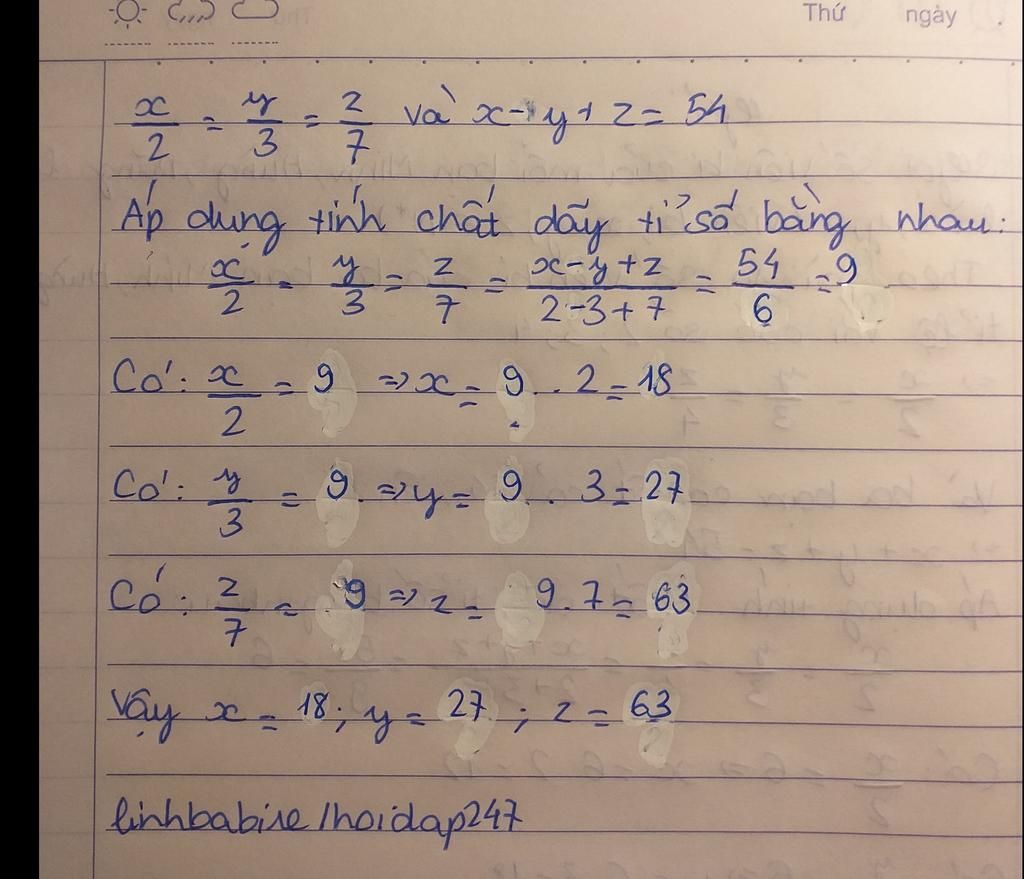 Thứ ngày .
x/2 = y/3 = z/7 và x - y + z = 54
Áp dụng tính chất dãy tỉ số bằng nhau:
x/2 = y/3 = z/7 = (x-y+z)/(2-3+7) = 54/6 = 9
Có: x/2 = 9 => x = 9 . 2 = 18
Có: y/3 = 9 => y = 9 . 3 = 27
Có: z/7 = 9 => z = 9.7 = 63
Vậy x = 18; y = 27 ; z = 63
linhbabire/hoidap247